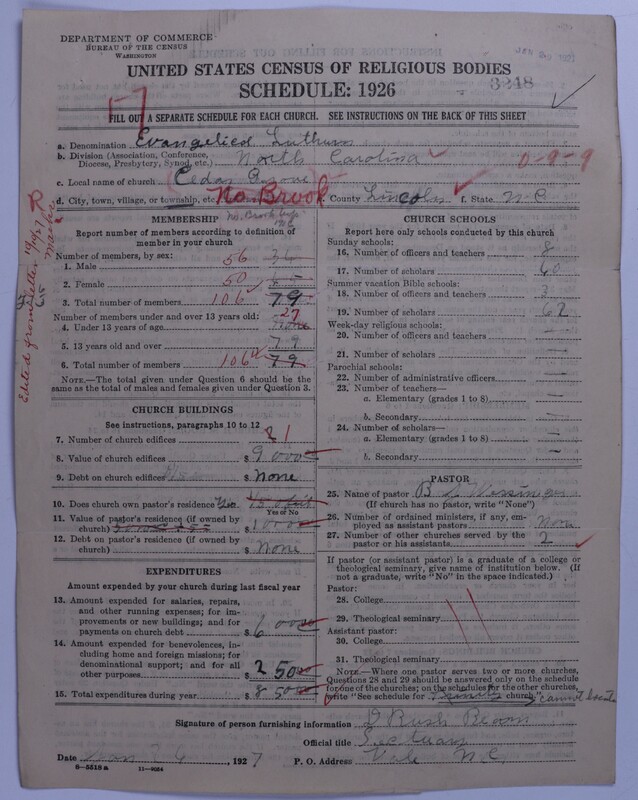 DEPARTMENT OF COMMERCE
BUREAU OF THE CENSUS
WASHINGTON
UNITED STATES CENSUS OF RELIGIOUS BODIES
SCHEDULE: 1926
3248
FILL OUT A SEPARATE SCHEDULE FOR EACH CHURCH. SEE INSTRUCTIONS ON THE BACK OF THIS SHEET
a. Denomination Evangelical Luthern
b. Division (Association, Conference, Diocese, Presbytery, Synod, etc.) North Carolina
0-9-9
c. Local name of church Cedar Grove
d. City, town, village, or township, etc. No. Brook County Lincoln f. State N.C
Edited from letter
MEMBERSHIP
Report number of members according to definition of member in your church
Number of members, by sex:
1. Male 56
2. Female 50
3. Total number of members 106 79
Number of members under and over 13 years old:
4. Under 13 years of age 27 None
5. 13 years old and over 79
6. Total number of members 106 79
NOTE.—The total given under Question 6 should be the same as the total of males and females given under Question 3.
CHURCH BUILDINGS
See instructions, paragraphs 10 to 12
7. Number of church edifices 1
8. Value of church edifices $ 9000
9. Debt on church edifices $ None
10. Does church own pastor's residence
Yes or No
11. Value of pastor's residence (if owned by church) $ 1000
12. Debt on pastor's residence (if owned by church) $ None
EXPENDITURES
Amount expended by your church during last fiscal year
13. Amount expended for salaries, repairs, and other running expenses; for improvements or new buildings; and for payments on church debt $ 600
14. Amount expended for benevolences, including home and foreign missions; for denominational support; and for all other purposes $ 250
15. Total expenditures during year $ 850
CHURCH SCHOOLS
Report here only schools conducted by this church
Sunday schools:
16. Number of officers and teachers 8
17. Number of scholars 60
Summer vacation Bible schools:
18. Number of officers and teachers 3
19. Number of scholars 62
Week-day religious schools:
20. Number of officers and teachers —
21. Number of scholars —
Parochial schools:
22. Number of administrative officers —
23. Number of teachers—
a. Elementary (grades 1 to 8) —
b. Secondary —
24. Number of scholars—
a. Elementary (grades 1 to 8) —
b. Secondary —
PASTOR
25. Name of pastor B L
(If church has no pastor, write "None")
26. Number of ordained ministers, if any, employed as assistant pastors None
27. Number of other churches served by the pastor or his assistants 2
If pastor (or assistant pastor) is a graduate of a college or theological seminary, give name of institution below. (If not a graduate, write "No" in the space indicated.)
Pastor:
28. College
29. Theological seminary
Assistant pastor:
30. College
31. Theological seminary
NOTE.—Where one pastor serves two or more churches, Questions 28 and 29 should be answered only on the schedule for one of the churches; on the schedules for the other churches, write "See schedule for church." cannot locate
Signature of person furnishing information D Rush Bloom
Official title Sectuary
Date Jan 26, 1927 P. O. Address Vale N.C
8-5518a 11-9084